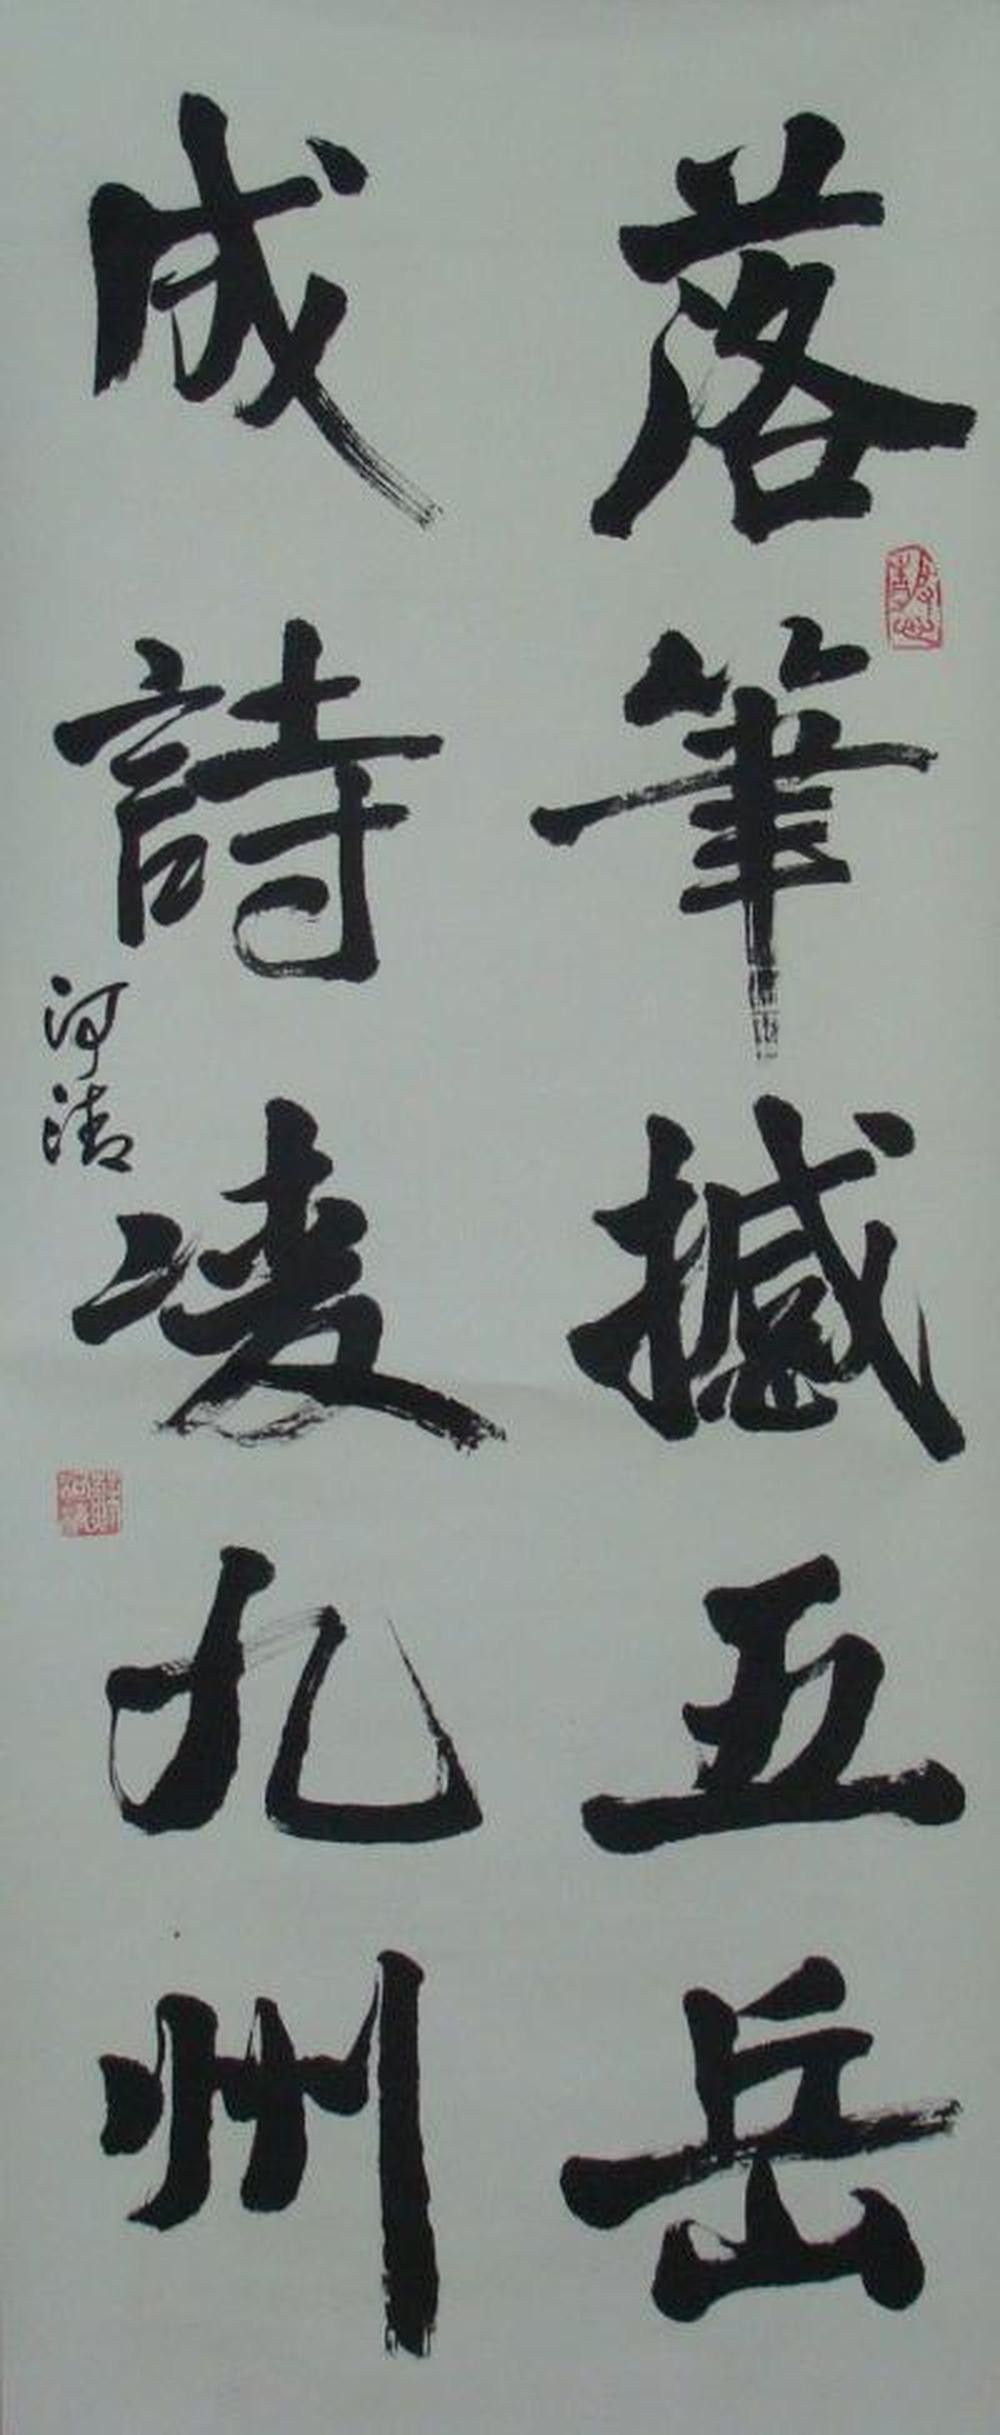 落筆撼五岳
成詩凌九州
河清